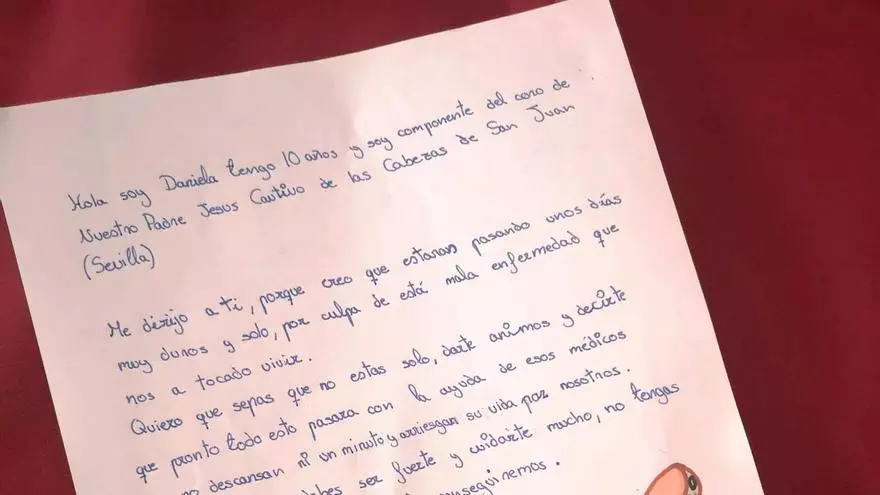 Hola soy Daniela tengo 10 años y soy componente del coro de
Nuestro Padre Jesus Cautivo de las Cabezas de San Juan
(Sevilla)
Me dirijo a ti, porque creo que estaras pasando unos días
muy duros y solo, por culpa de está mala enfermedad que
nos a tocado vivir.
Quiero que sepas que no estas solo, darte animos y decirte
que pronto todo esto pasara con la ayuda de esos médicos
no descansan ni un minuto y arriesgan su vida por nosotros.
ser fuerte y cuidarte mucho, no tengas